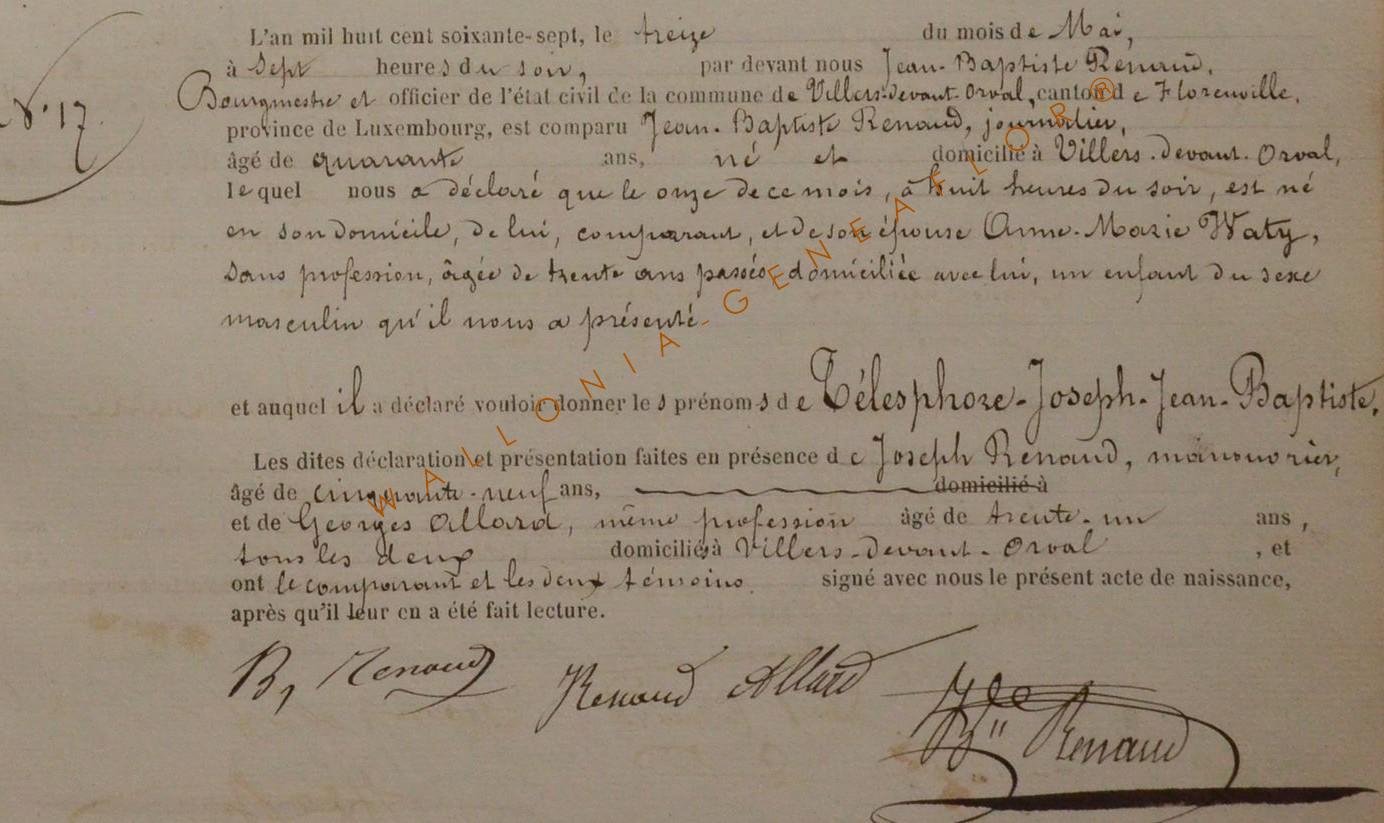 L'an mil huit cent soixante-sept, le treize du mois de Mai,
à Sept heures du soir, par devant nous Jean-Baptiste Renaud,
Bourgmestre et officier de l'état civil de la commune de Villers-devant-Orval, canton de Florenville,
N° 17.
province de Luxembourg, est comparu Jean-Baptiste Renaud, journalier,
âgé de quarante ans, né et domicilié à Villers-devant-Orval,
lequel nous a déclaré que le onze de ce mois, à huit heures du soir, est né
en son domicile, de lui, comparant, et de son épouse Anne-Marie Waty,
sans profession, âgée de trente ans passés, domiciliée avec lui, un enfant du sexe
masculin qu'il nous a présenté
et auquel il a déclaré vouloir donner les prénoms de Télesphore-Joseph-Jean-Baptiste.
Les dites déclaration et présentation faites en présence de Joseph Renaud, manouvrier,
âgé de cinquante-neuf ans, domicilié à
et de Georges Allard, même profession âgé de trente-un ans,
tous les deux domiciliés à Villers-devant-Orval, et
ont le comparant et les deux témoins signé avec nous le présent acte de naissance,
après qu'il leur en a été fait lecture.
B, Renaud Renaud Allard
Renaud
WALLONIA-GENEAFLOR®